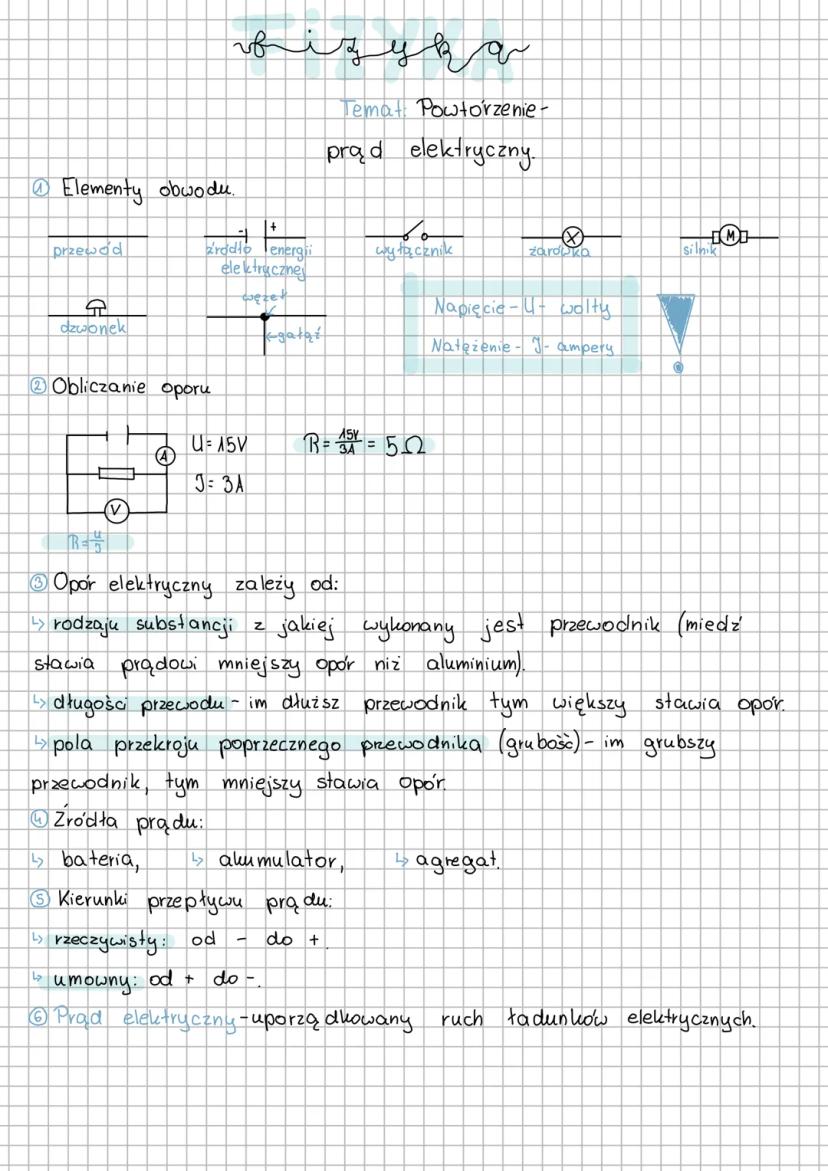 FIZYKA
fizyka
Temat: Powtórzenie-
prąd elektryczny.
① Elementy obwodu.
- +
przewód źródło energii elektrycznej wyłącznik żarówka silnik M
węzeł
dzwonek gałąź
Napięcie - U - wolty
Natężenie - J - ampery
② Obliczanie oporu
A U= 15V R= 15V/3A = 5Ω
J= 3A
V
R= U/J
③ Opór elektryczny zależy od:
↳ rodzaju substancji z jakiej wykonany jest przewodnik (miedź
stawia prądowi mniejszy opór niż aluminium).
↳ długości przewodu - im dłuższ przewodnik tym większy stawia opór.
↳ pola przekroju poprzecznego przewodnika (grubość) - im grubszy
przewodnik, tym mniejszy stawia opór.
④ Źródła prądu:
↳ bateria, ↳ akumulator, ↳ agregat.
⑤ Kierunki przepływu prądu:
↳ rzeczywisty: od - do +
↳ umowny: od + do -.
⑥ Prąd elektryczny - uporządkowany ruch ładunków elektrycznych.